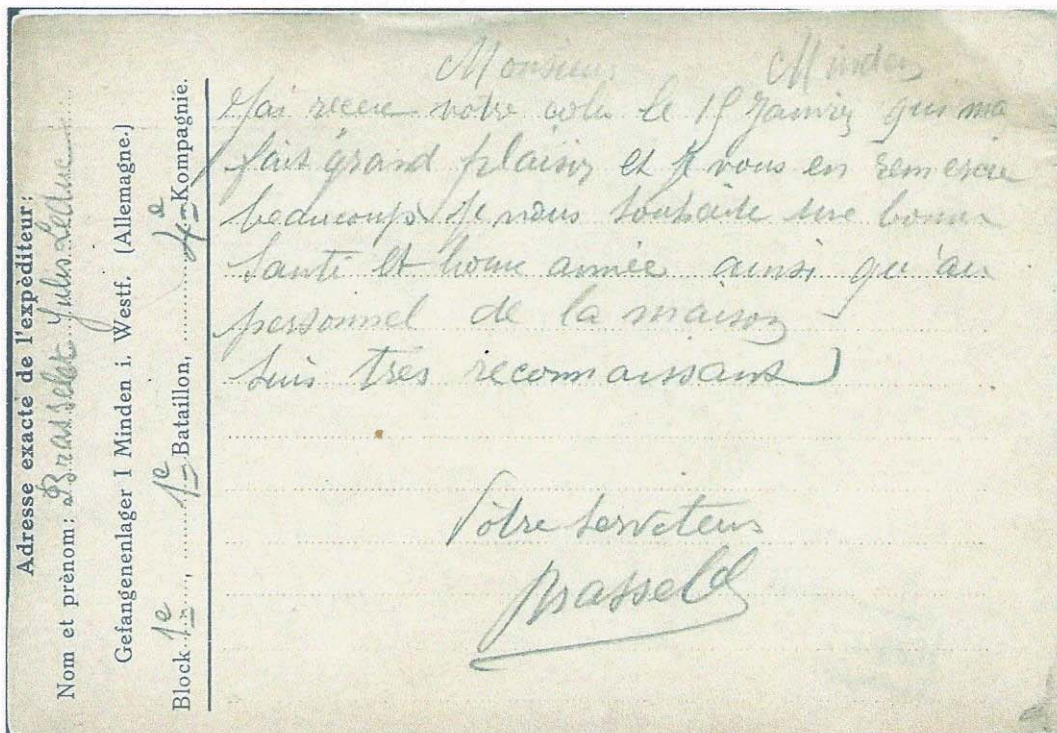 Adresse exacte de l'expèditeur:
Nom et prènom: Brasselet Jules Leduc
Gefangenenlager I Minden i. Westf. (Allemagne.)
Block 1e, 1e Bataillon, 4e Kompagnie.
Monsieur Minden
J'ai recue votre colis le 15 Janvier qui ma
fait grand plaisir et je vous en remercie
beaucoup je vous souhaite une bonne
Santé et bonne année ainsi qu'au
personnel de la maison
Suis tres reconnaissant
Votre Serviteur
Brasselet